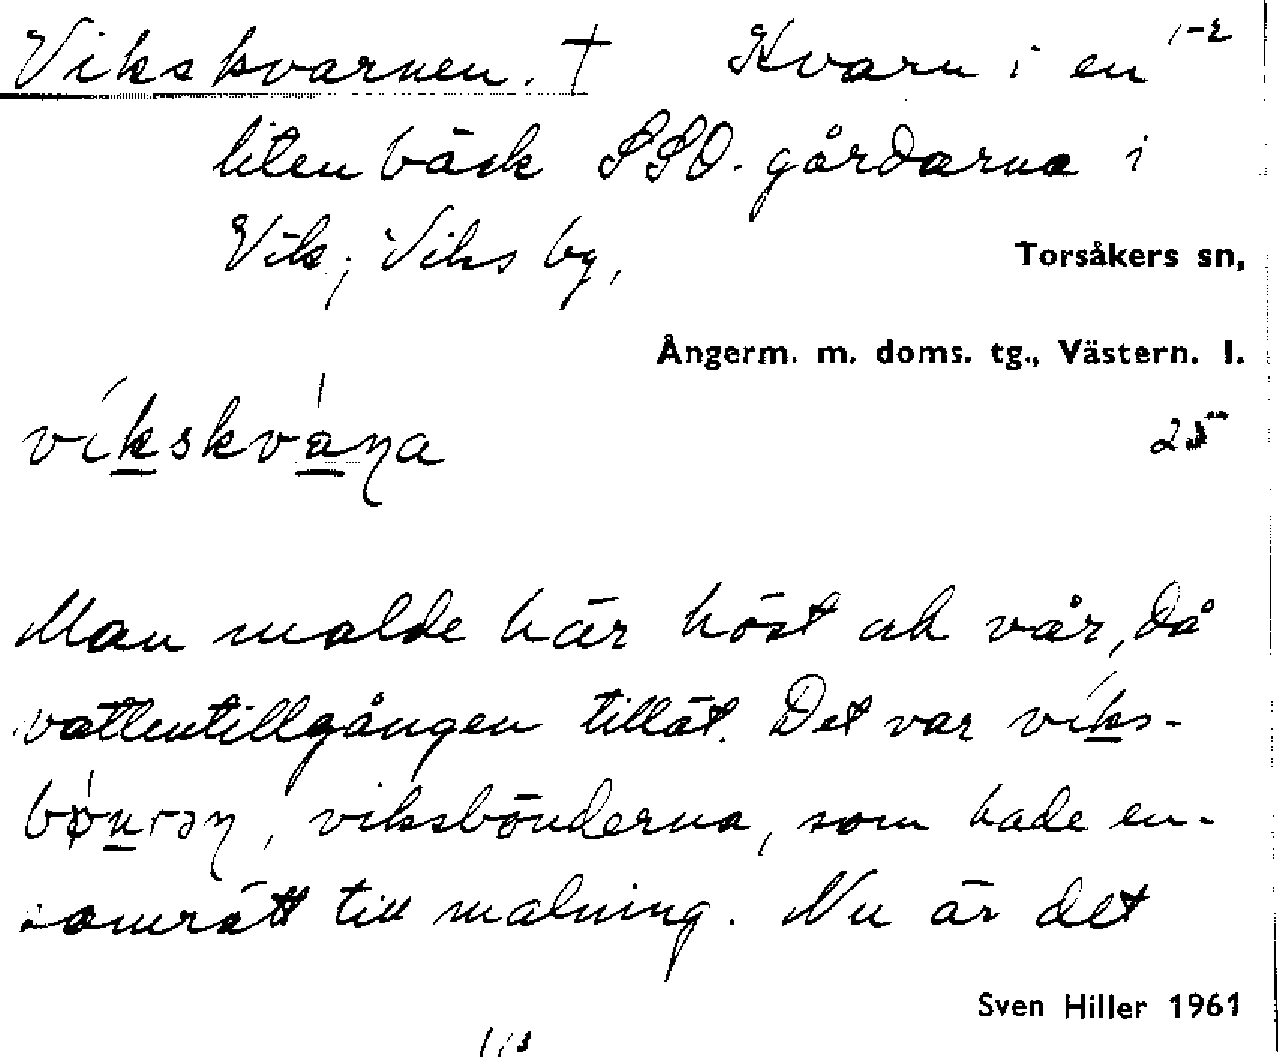 Vikskvarnen. † Kvarn i en 1-2
liten bäck SSO. gårdarna i
Vik; Viks by,
Torsåkers sn,
Ångerm. m. doms. tg., Västern. l.
víkskvȧŋa 25
Man malde här höst och vår, då
vattentillgången tillät. Det var víks-
viksbönderna, som hade en-
samrätt till malning. Nu är det
Sven Hiller 1961